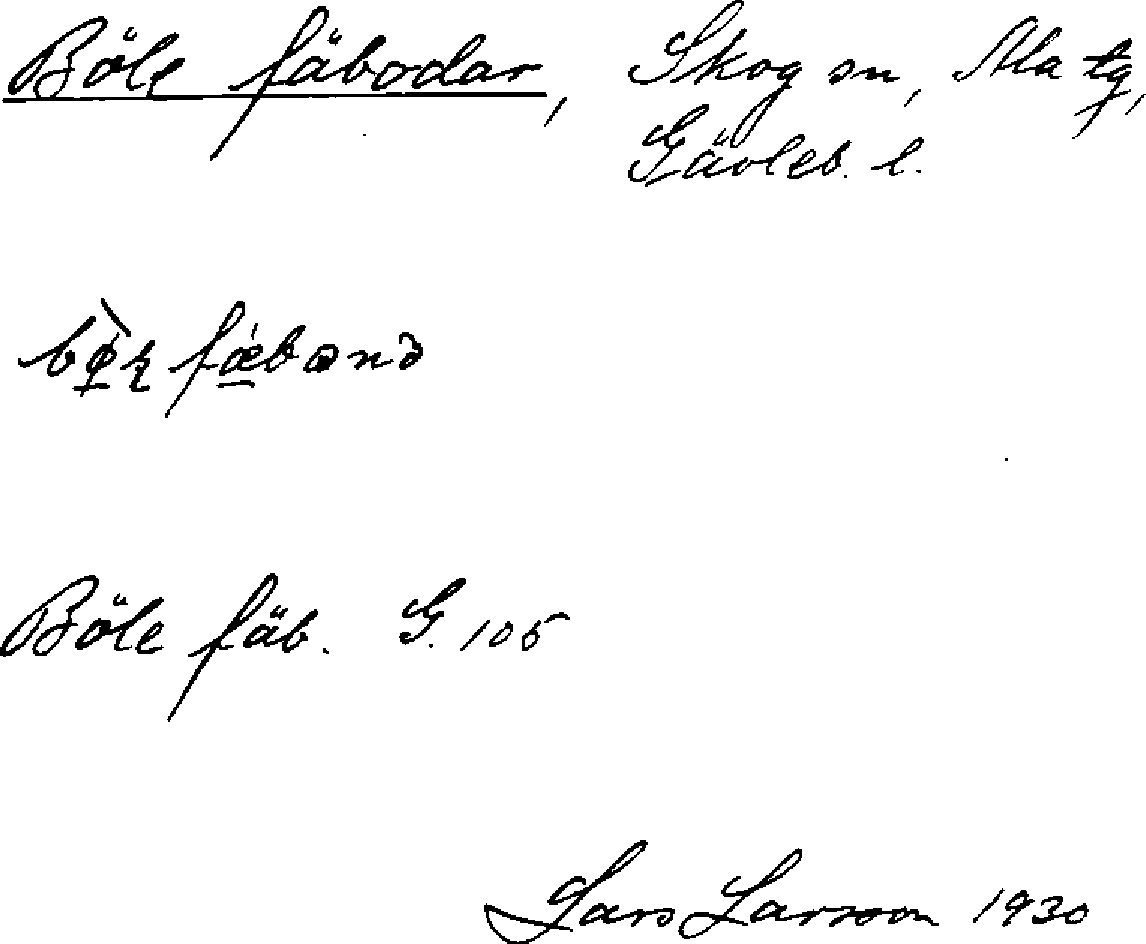 Böle fäbodar, Skog sn, Ala tg,
Gävleb. l.
Böle fäb. G. 105
Lars Larsson 1930